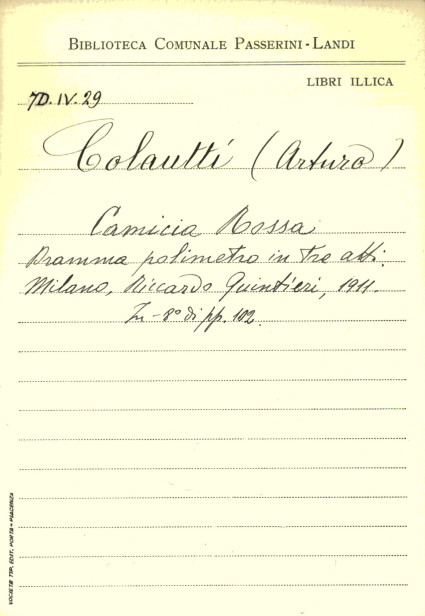 BIBLIOTECA COMUNALE PASSERINI-LANDI
LIBRI ILLICA
7D.IV.29
Colautti (Arturo)
Camicia Rossa
Dramma polimetro in tre atti.
Milano, Riccardo Quintieri, 1911.
In-8° di pp. 102.
SOCIETÀ TIP. EDIT. PORTA - PIACENZA